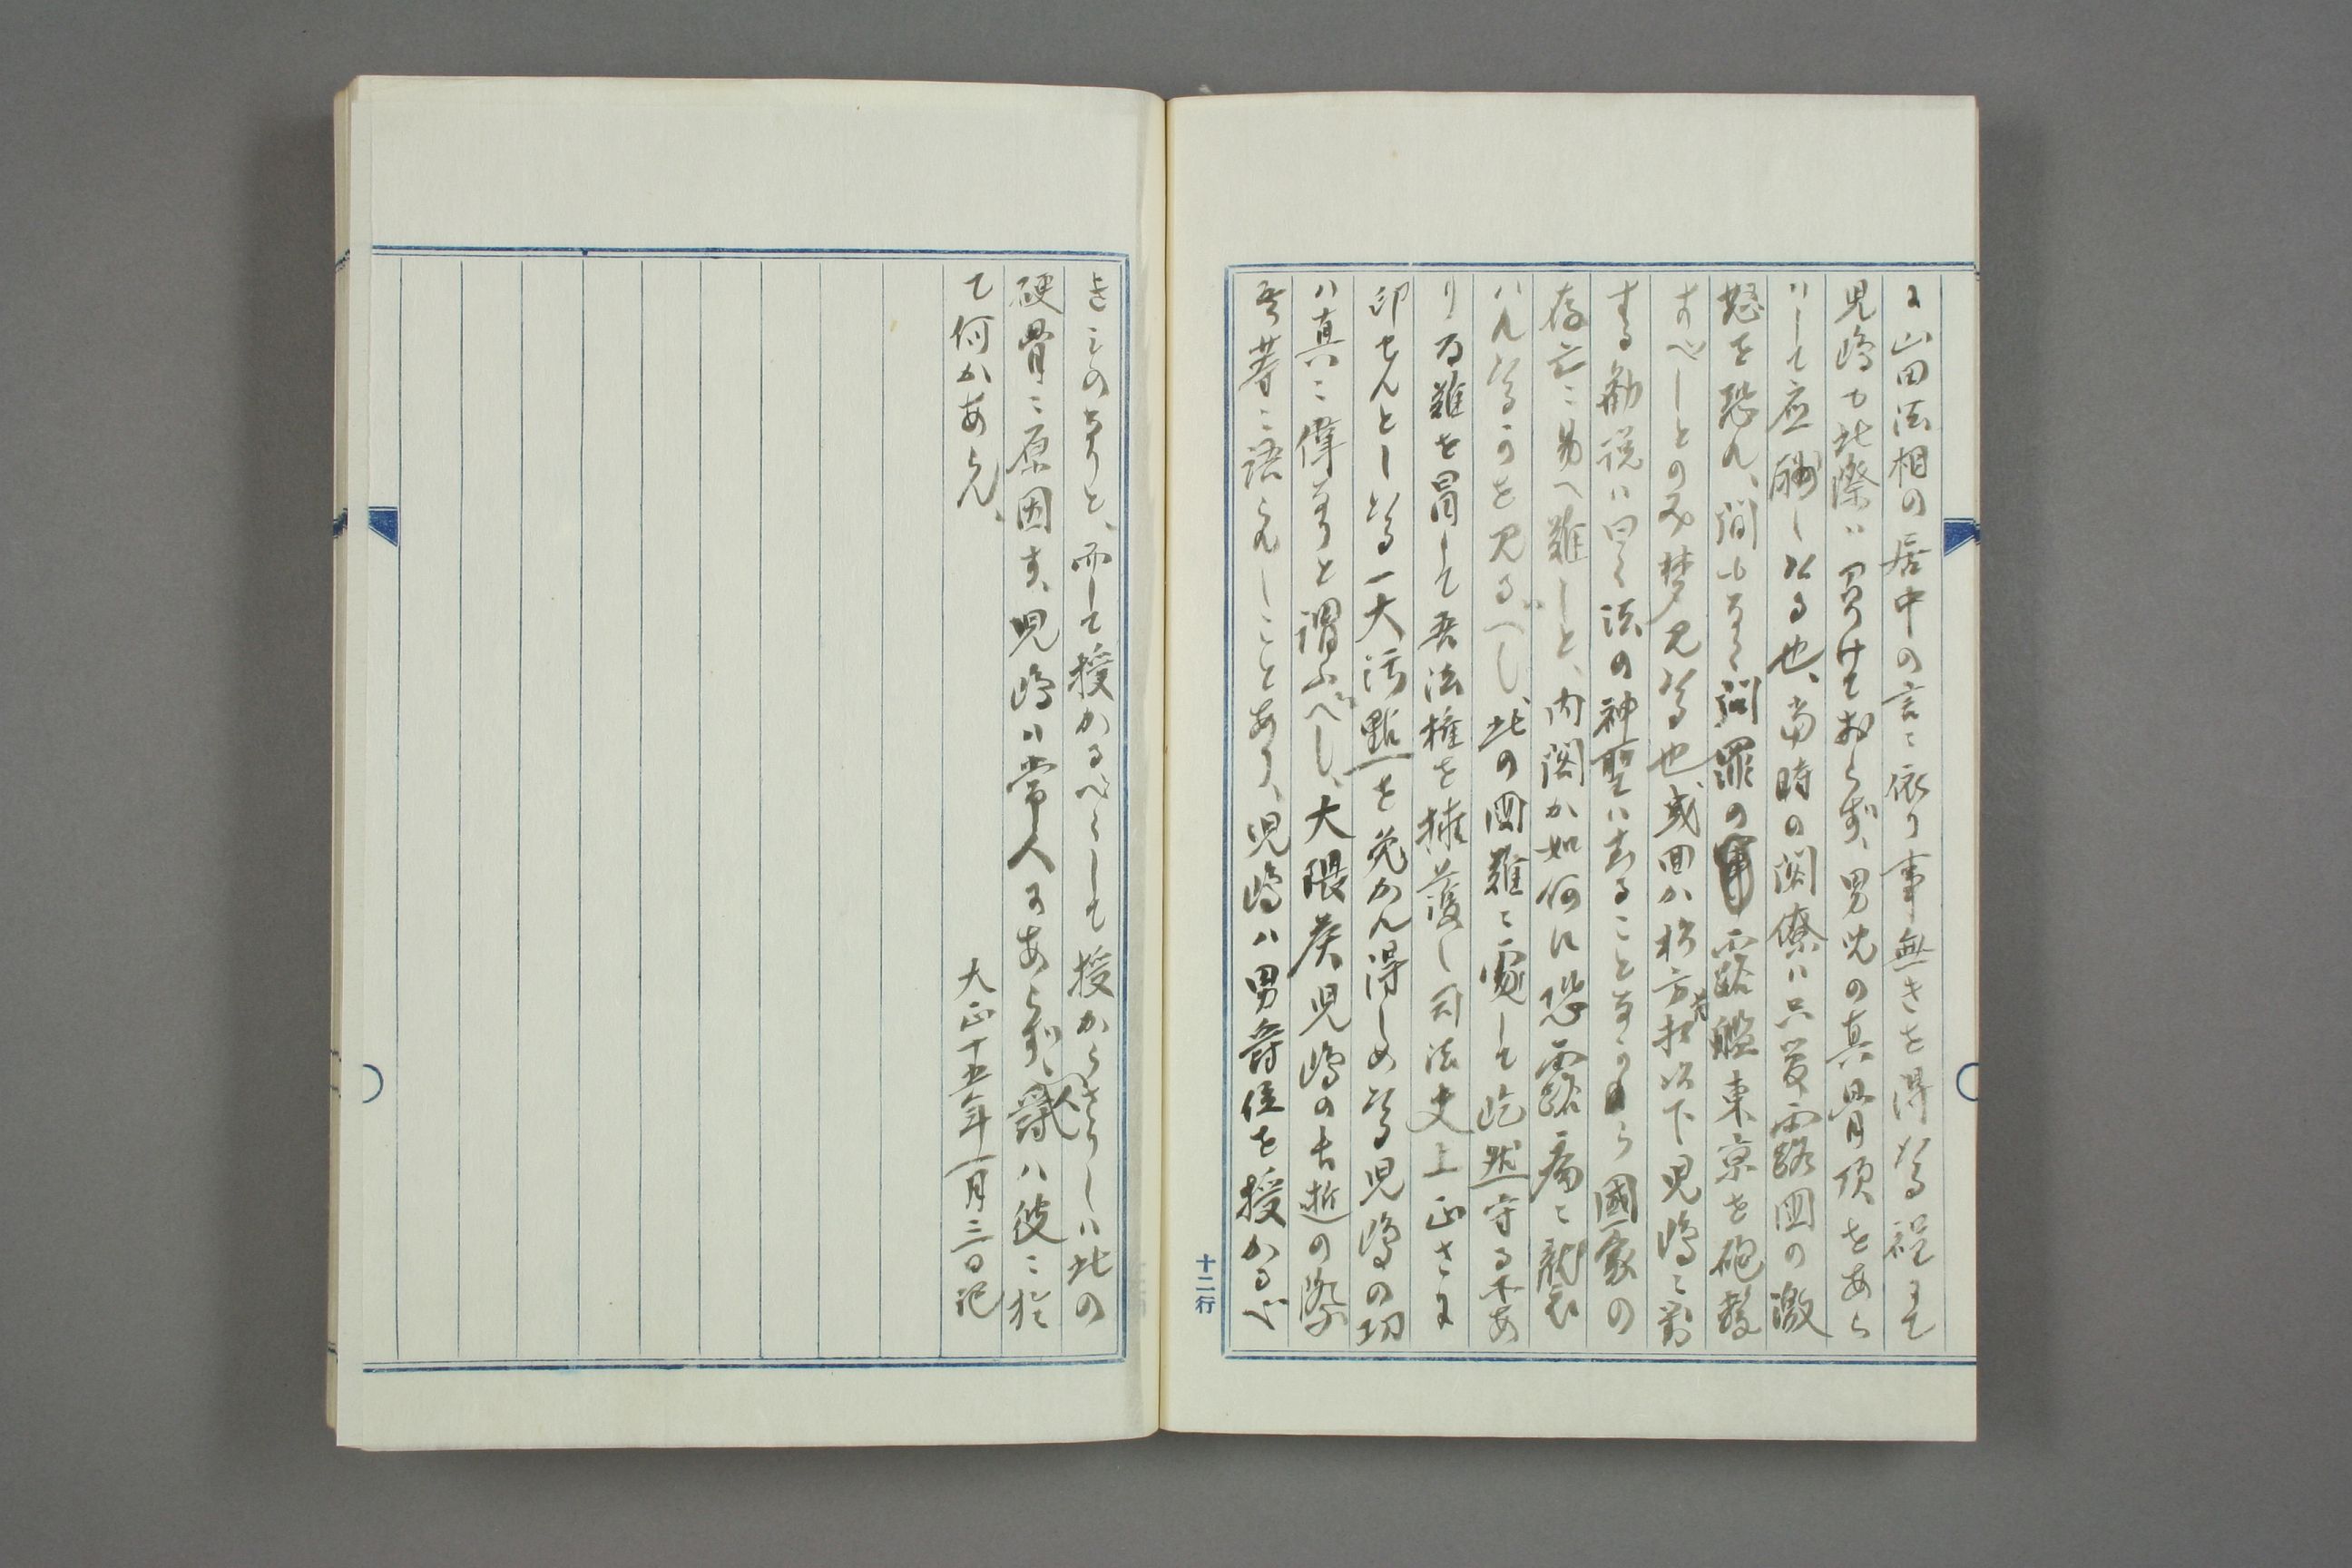 に山田法相の居中の言ニ依り事無きを得たる程にて
児嶋も此際ハ負けておらず、男児の真骨頂をあら
ハして応酬したる也、当時の閣僚ハ只管露国の激
怒を恐れ、間もなく問罪の軍露艦東京を砲撃
すべしとのみ夢見たる也、或回か松方首相以下児嶋ニ対
する勧説ハ曰く法の神聖ハ去ることながら國家の
存亡ニ易へ難しと、内閣か如何に恐露病ニ襲
ハれたるかを見るべし、此の国難ニ処して屹然守る所あ
り万難を冒して吾法権を擁護し司法史上正さに
印せんとしたる一大汚點を免かれ得しめたる児嶋の功
ハ真ニ偉なりと謂ふべし、大隈侯児嶋の長逝の際
吾等ニ語られしことあり、児嶋ハ男爵位を授かるべ
きものなりと、而して授かるべくして授からざりしハ此の
硬骨ニ原因す、児嶋ハ常人にあらず、人爵ハ彼ニ於
て何かあらん、
大正十五年一月三日記
十二行